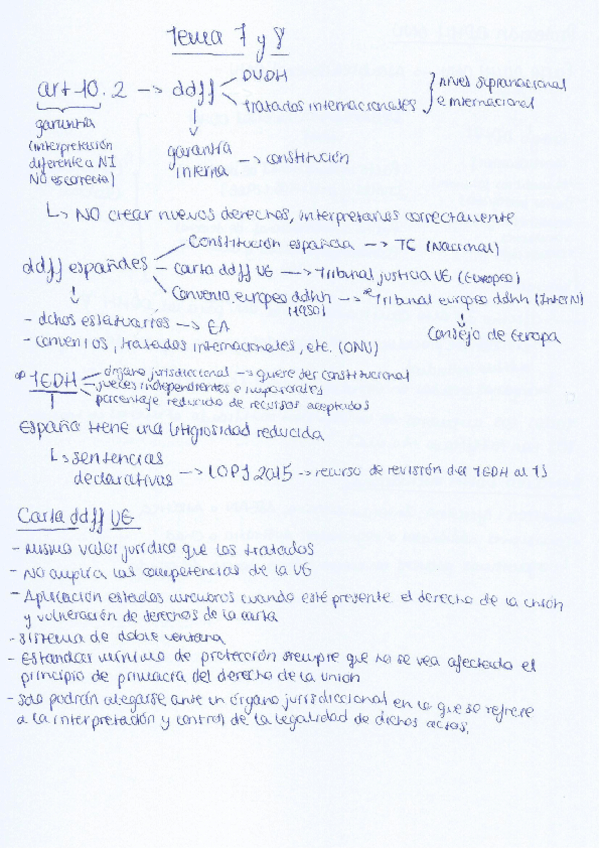 Tema 7 y 8
art 10.2 → ddff
DUDH
tratados internacionales
niveles supranacional
e internacional
garantía
(interpretación
diferente a NI
NO es correcta)
garantía
interna → constitución
↳ NO crear nuevos derechos, interpretarlos correctamente
ddff españoles
Constitución española → TC (Nacional)
Carta ddff UE → Tribunal justicia UE (Europeo)
Convenio europeo ddhh → Tribunal europeo ddhh (InterN)
(1950)
Consejo de Europa
- dchos estatuarios → EA
- convenios, tratados internacionales, etc. (ONU)
TEDH
órgano jurisdiccional → quiere ser constitucional
jueces independientes e imparciales
porcentaje reducido de recursos aceptados
España tiene una litigiosidad reducida
↳ sentencias
declarativas → LOPJ 2015 → recurso de revisión del TEDH al TS
Carta ddff UE
- mismo valor jurídico que los tratados
- NO amplía las competencias de la UE
- Aplicación estados miembros cuando esté presente el derecho de la unión
y vulneración de derechos de la carta
- sistema de doble ventana
- Estándar mínimo de protección siempre que no se vea afectado el
principio de primacía del derecho de la unión
- solo podrán alegarse ante un órgano jurisdiccional en lo que se refiere
a la interpretación y control de la legalidad de dichos actos.